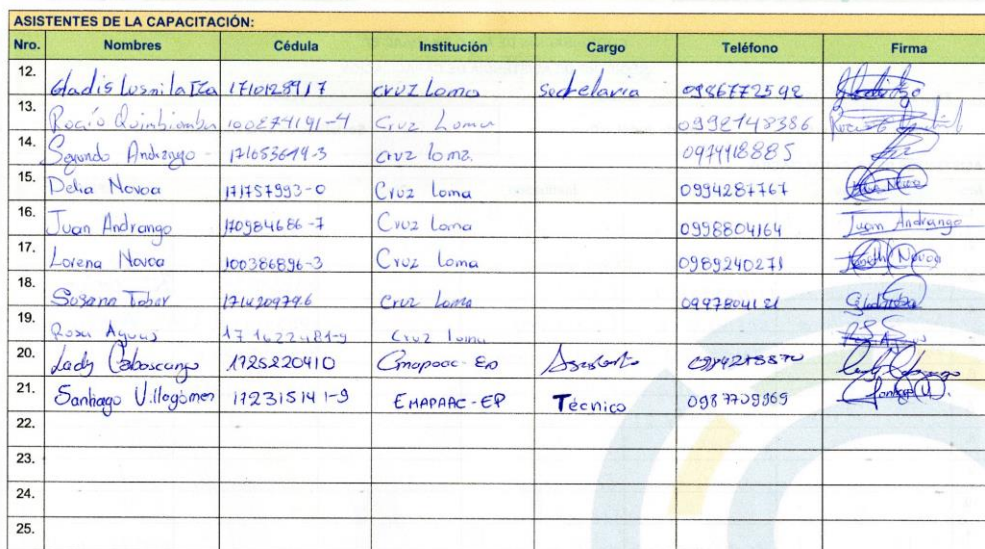 ASISTENTES DE LA CAPACITACIÓN:
Nro. Nombres Cédula Institución Cargo Teléfono Firma
12. Gladis Lusnila Iza 1710128917 cruz Loma secretaria 0986772592
13. Rocío Quimbiamba 100274191-4 Cruz Loma 0992148386
14. Segundo Andrango 171053649-3 cruz loma. 0974118885
15. Delia Novoa 171757993-0 Cruz Loma 0994287767 Delia Novoa
16. Juan Andrango 170984686-7 Cruz Loma 0998804164 Juan Andrango
17. Lorena Novoa 100386896-3 Cruz Loma 0989240271 Novoa
18. Susana Tobar 1714209796 Cruz Loma
19. Rosa 171622481-9 Cruz loma
20. Lady Cabascango 1725220410 Emapaac-EP Asistente
21. Santiago Villagomez 17231514 1-9 EMAPAAC-EP Técnico 0987709969
22.
23.
24.
25.